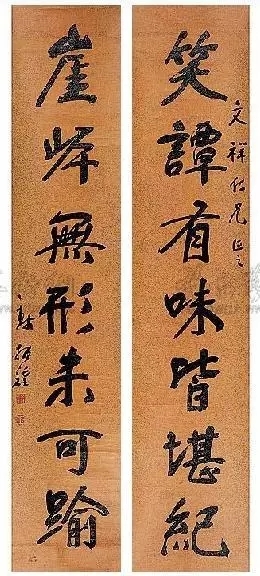 笑譚有味皆堪紀
文祥仁兄正之
崖岸無形未可踰